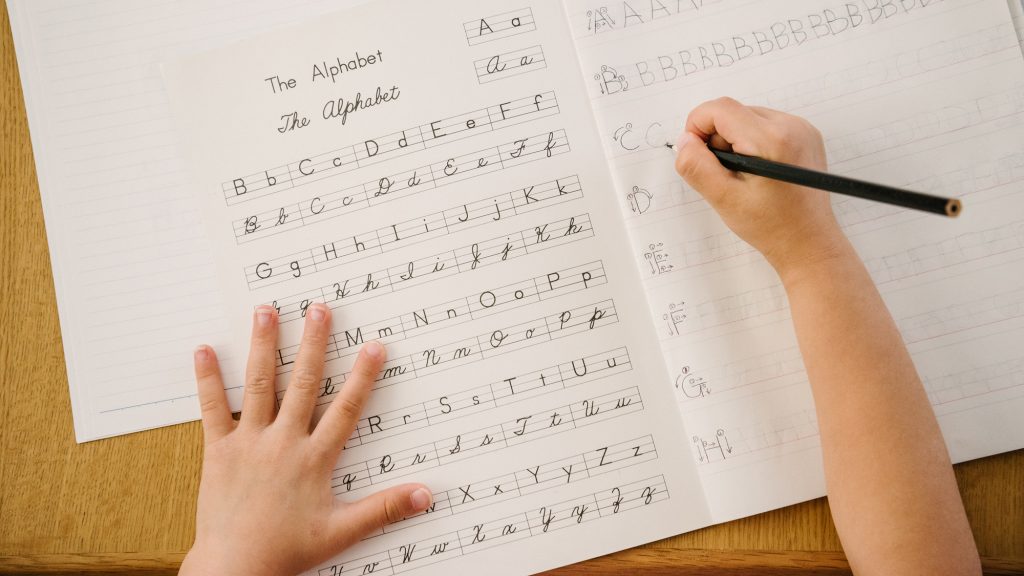 A a
A a
The Alphabet
The Alphabet
B b C c D d E e F f
B b C c D d E e F f
G g H h I i J j K k
g H h I i J j K k
L M m N n O o P p
m N n O o P p
R r S s T t U u
q R r S s T t U u
X x Y y Z z
V v W w X x Y y Z z
A A A A A
B B B B B B B B B B B B
C C
D
E
F
G
H